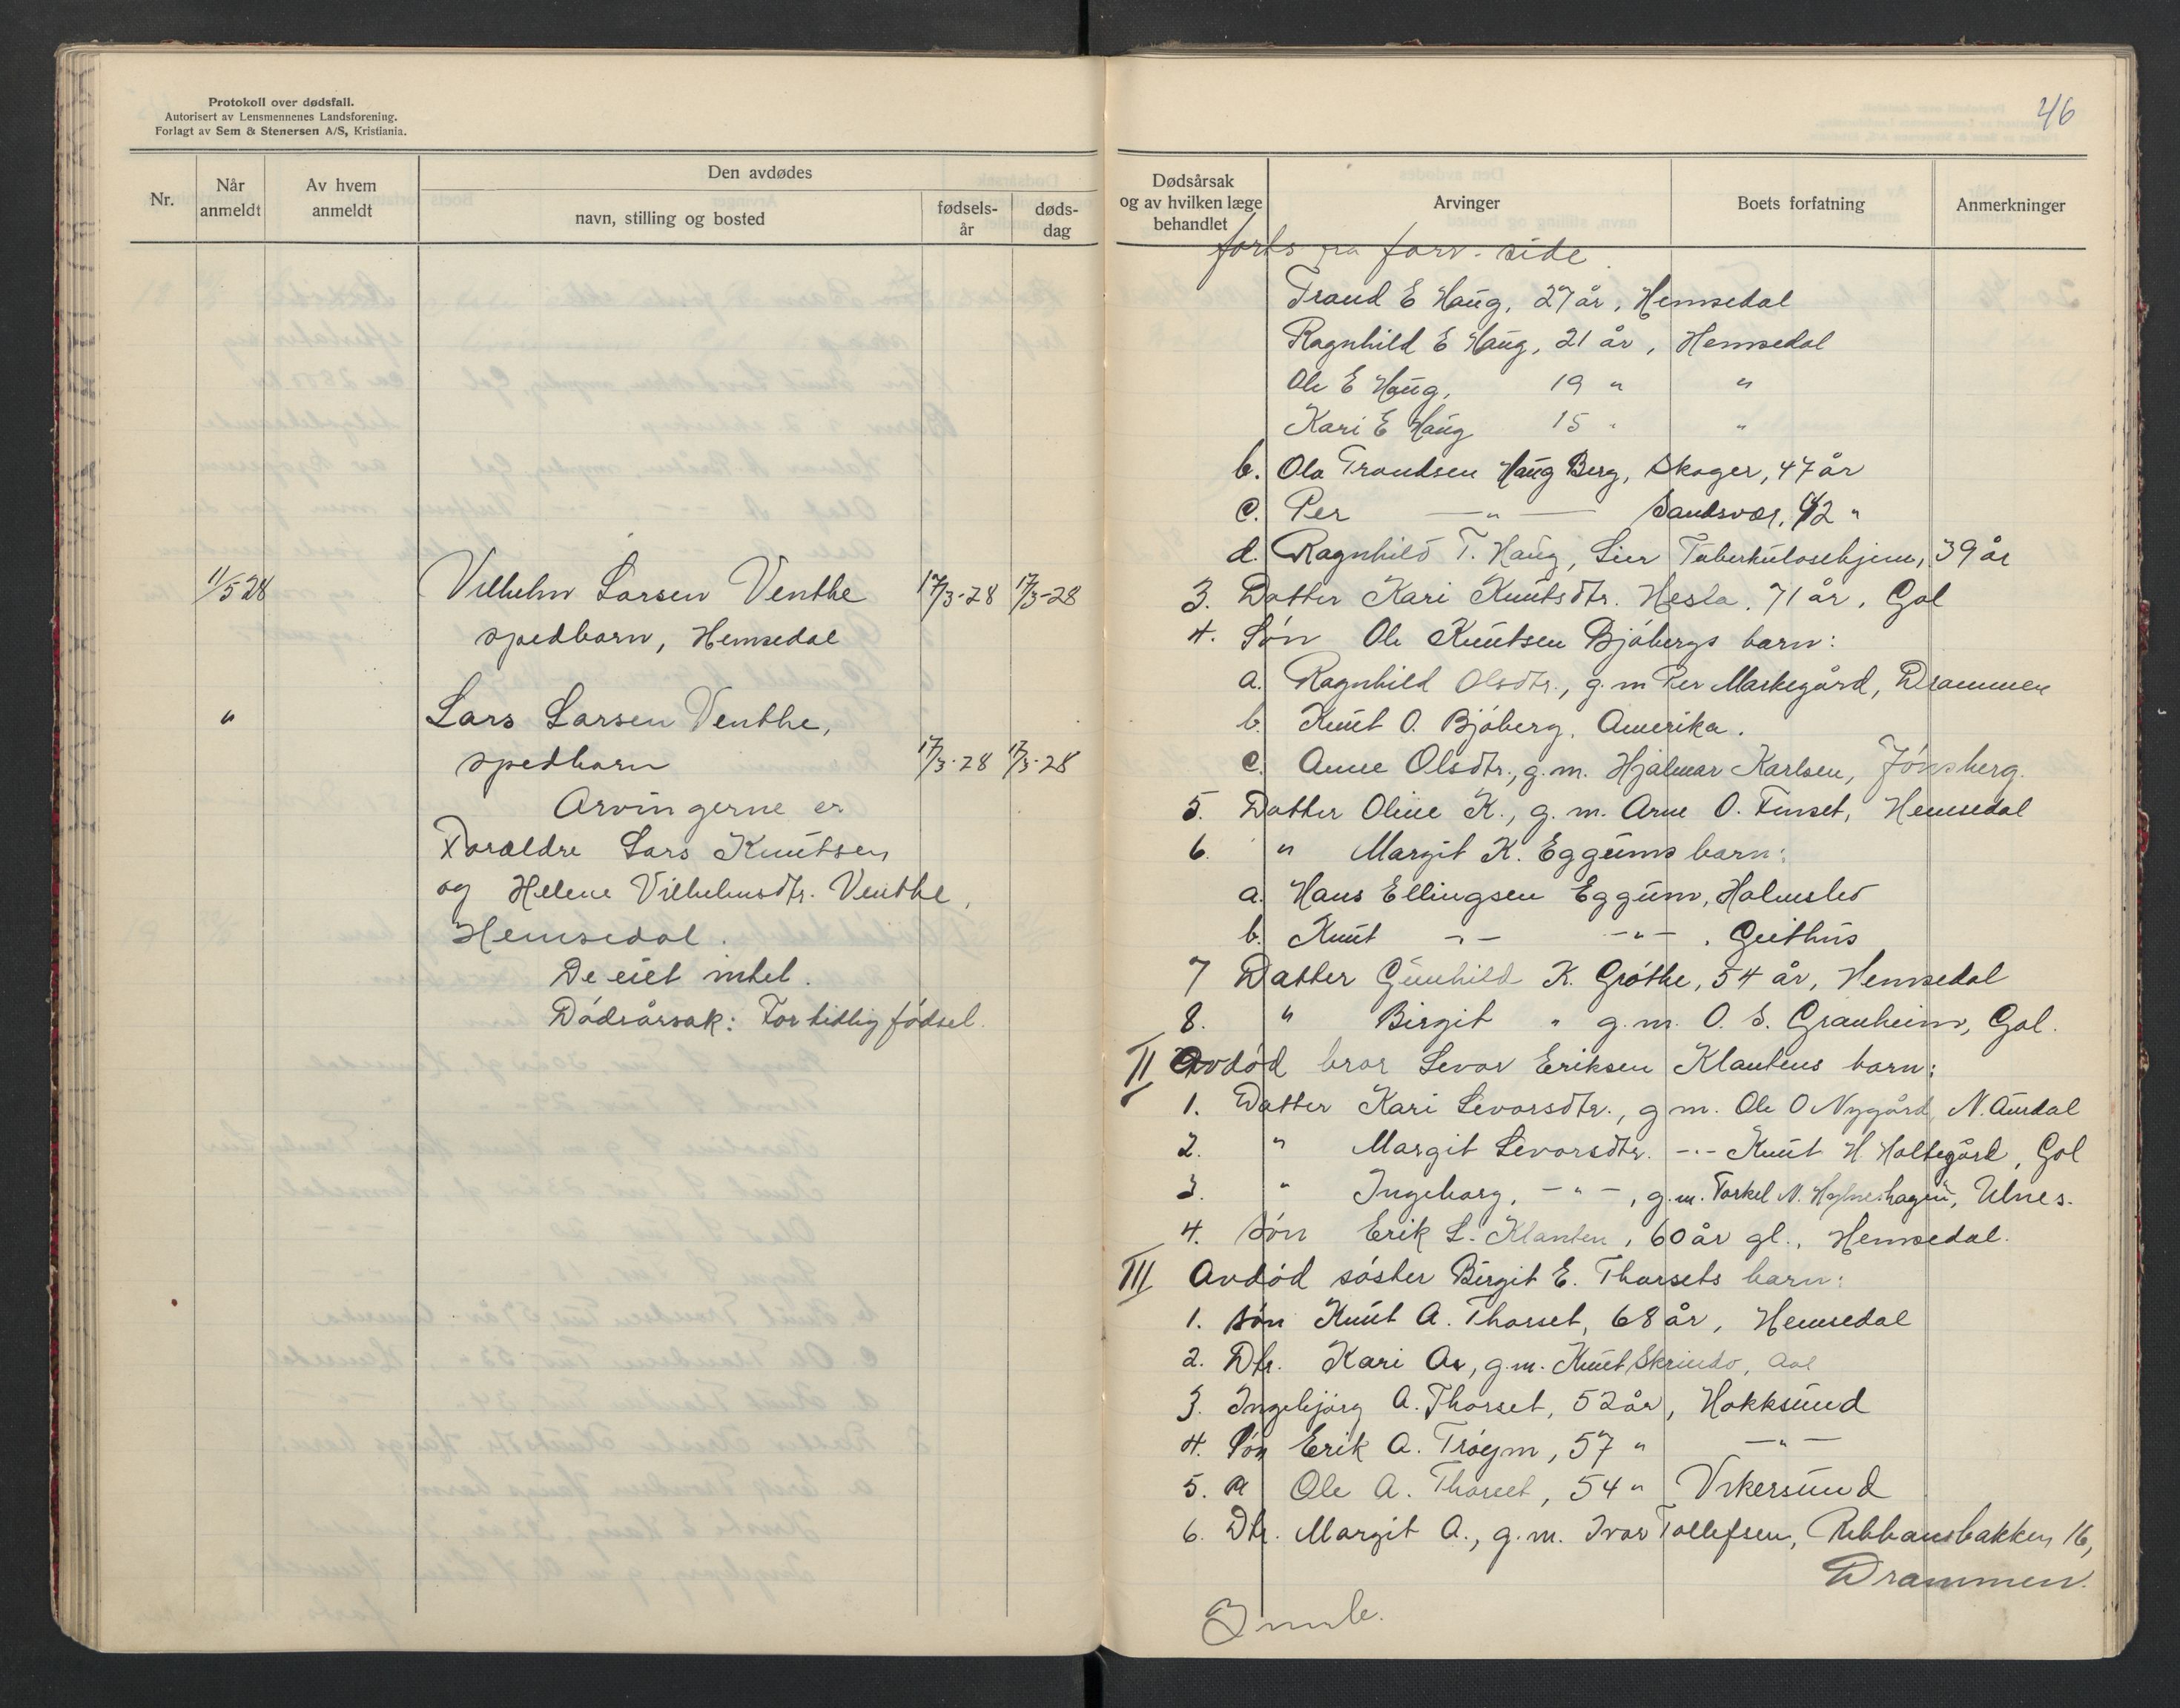 Protokoll over dødsfall.
Autorisert av Lensmennenes Landsforening.
Forlagt av Sem & Stenersen A/S, Kristiania.
Nr.
Når anmeldt
Av hvem anmeldt
Den avdødes
navn, stilling og bosted
fødsels-år
døds-dag
11/5 28 Vilhelm Larsen Venthe 17/3-28 17/3-28
spedbarn, Hemsedal
" Lars Larsen Venthe,
spedbarn 17/3-28 17/3-28
Arvingerne er
Foraldre Lars Knutsen
og Helene Vilhelmsdtr. Venthe,
Hemsedal.
De eiet intet.
Dødsårsak: For tidlig fødsel.
46
Dødsårsak og av hvilken læge behandlet
Arvinger
Boets forfatning
Anmerkninger
forts fra forr. side.
Trond E Haug, 27 år, Hemsedal
Ragnhild E Haug, 21 år, Hemsedal
Ole E Haug, 19 " "
Kari E Haug 15 " "
b. Ola Trondsen Haug Berg, Skoger, 47 år
c. Per — " — Sandsvær, 42 "
d. Ragnhild T. Haug, Lier Tuberkulosehjem, 39 år
3. Datter Kari Knutsdtr. Hesla, 71 år, Gol
4. Søn Ole Knutsen Bjøbergs barn:
a. Ragnhild Olsdtr., g.m Per Markegård, Drammen
b. Knut O. Bjøberg, Amerika.
c. Anne Olsdtr., g.m. Hjalmar Karlsen, Jønsberg.
5. Datter Oline K., g.m. Arne O. Finset, Hemsedal
6. " Margit K. Eggums barn:
a. Hans Ellingsen Eggum, Holmsbo
b. Knut -"- -"-, Geithus
7 Datter Gunhild K. Grøthe, 54 år, Hemsedal
8. " Birgit " g.m. O. S. Granheim, Gol.
II Avdød bror Levor Eriksen Klantens barn:
1. Datter Kari Levorsdtr., g m. Ole O Nygård, N. Aurdal
2. " Margit Levorsdtr. -"- Knut H. Holtegård, Gol
3. " Ingeborg, -"-, g.m. Torkel N. Ulnes.
4. Søn Erik L. Klanten, 60 år gl., Hemsedal.
III Avdød søster Birgit E. Thorsets barn:
1. Søn Knut A. Thorset, 68 år, Hemsedal
2. Dtr. Kari A., g.m. Knut Skrindo, Aal
3. Ingebjørg A. Thorset, 52 år, Hokksund
4. Søn Erik A. Trøym, 57 " — " —
5. " Ole A. Thorset, 54 " Vikersund
6. Dtr. Margit A., g.m. Ivar Tollefsen, Ribbansbakken 16,
Drammen.